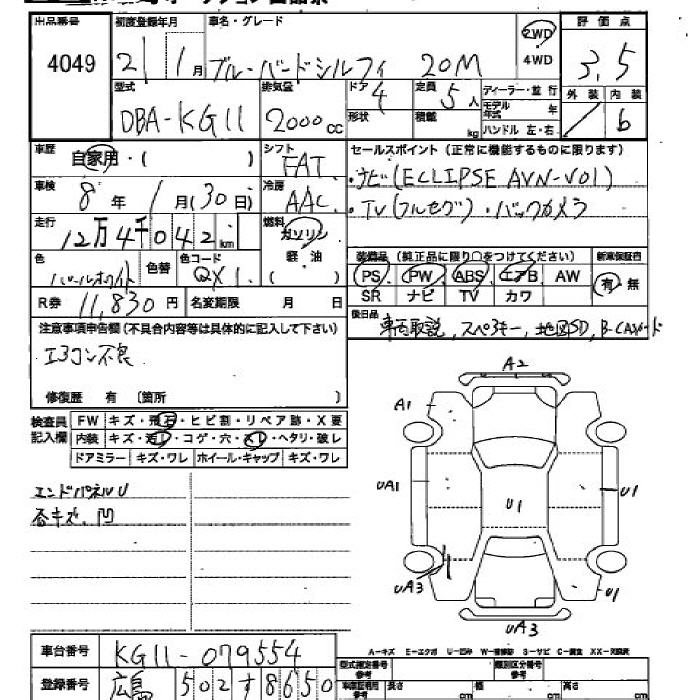 出品番号 初度登録年月 車名・グレード 評価点
4049 21 1月 ブルーバードシルフィ 20M 2WD 4WD 3.5
型式 排気量 ドア 4 定員 5人 ディーラー・並行 外装 内装
DBA-KG11 2000cc 形状 積載 kg モデル年式 年 ハンドル 左・右 b
車歴 自家用・( ) シフト FAT セールスポイント (正常に機能するものに限ります)
車検 8年 1月(30日) 冷房 AAC ・ナビ(ECLIPSE AVN-V01)
走行 12万4千042km 燃料 ガソリン 軽油 ( ) ・TV(フルセグ)・バックカメラ
色 パールホワイト 色替 色コード QX1 装備品 (純正品に限り○をつけてください) 新車保証書
PS PW ABS エアB AW 有・無
R券 11,830円 名変期限 月 日 SR ナビ TV カワ
注意事項申告欄(不具合内容等は具体的に記入して下さい) 後日品 車両取説, スペアキー, 地図SD, B-CASカード
エアコン不良
修復歴 有 〔箇所 〕
検査員記入欄 FW キズ・飛石・ヒビ割・リペア跡・X要
内装 キズ・汚レ・コゲ・穴・スレ・ヘタリ・破レ
ドアミラー キズ・ワレ ホイール・キャップ キズ・ワレ
A2
A1
UA1 U1 U1
UA3 U1
UA3
エンドパネルU
各キズ、凹
A-キズ E-エクボ U-凹み W-補修跡 S-サビ C-腐食 XX-交換済
車台番号 KG11-079554 型式指定番号 参考 類別区分番号 参考
登録番号 広島 502す8650 車庫証明用 参考 長さ cm 幅 cm 高さ cm